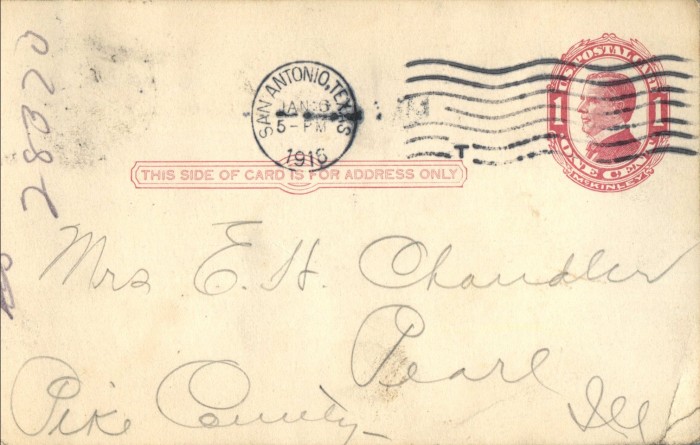 28320
SAN ANTONIO, TEXAS
JAN 6
5-PM
1916
U.S. POSTAL CARD
1 1
ONE CENT
McKINLEY
THIS SIDE OF CARD IS FOR ADDRESS ONLY
Mrs E. H. Chandler
Pearl
Pike County Ill